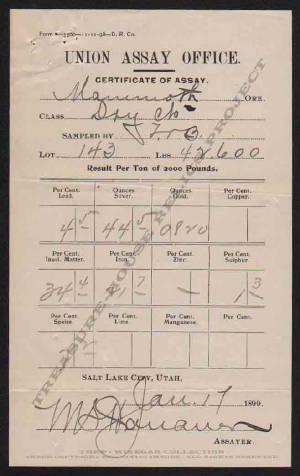 Form 5500-12-22-98-D. R. Co.
UNION ASSAY OFFICE.
CERTIFICATE OF ASSAY.
Mammoth ORE
CLASS Dry
SAMPLED BY
LOT 143 LBS 42,600
Result Per Ton of 2000 Pounds.
Per Cent. Lead. Ounces Silver. Ounces Gold. Per Cent. Copper.
4 5 44 5 0820
Per Cent. Insol. Matter. Per Cent. Iron. Per Cent. Zinc. Per Cent. Sulphur
34 4 7 — 1 3
Per Cent. Speiss Per Cent. Lime. Per Cent. Manganese.
SALT LAKE CITY, UTAH,
Jan. 17 1899.
M S Hanauer
ASSAYER.
TREASURE HOUSE RELICS PROJECT